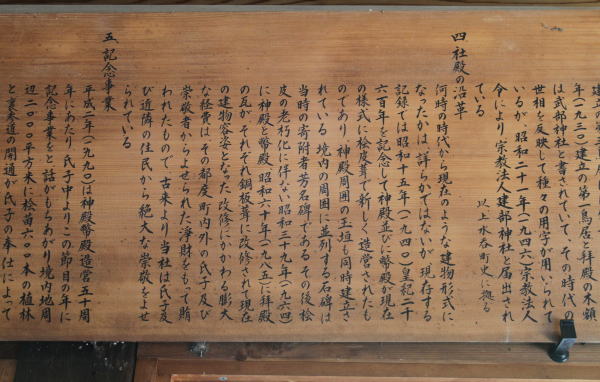 年(一九三〇)建立の第一鳥居と拝殿の木額
は武部神社と書されていて、その時代の
世相を反映して種々の用字が用いられて
いるが、昭和二十一年(一九四六)宗教法人
令により、宗教法人建部神社と届出され
ている
以上水呑町史に拠る
四 社殿の沿革
何時の時代から現在のような建物形式に
なったかは詳らかではないが、現存する
記録では昭和十五年(一九四〇)皇紀二千
六百年を記念して神殿並びに幣殿が現在
の様式に桧皮葺で新しく造営されたも
のであり、神殿周囲の玉垣も同時建立さ
れている 境内の周囲に並列する石碑は
当時の寄附者芳名碑である その後桧
皮の老朽化に伴ない昭和三十九年(一九六四)
に神殿と幣殿 昭和六十年(一九八五)に拝殿
の瓦がそれぞれ銅板葺に改修され現在
の建物容姿となった 改修にかかわる膨大
な経費はその都度町内外の氏子及び
崇敬者からよせられた浄財をもって賄
われたもので、古来より当社は氏子及
び近隣の住民から絶大な崇敬をよせ
られている
五 記念事業
平成二年(一九九〇)は神殿幣殿造営五十周
年にあたり、氏子中よりこの節目の年に
記念事業をと話がもちあがり境内地周
辺二〇〇〇平方米に桧苗六〇〇本の植林
と裏参道の開通が氏子の奉仕によって